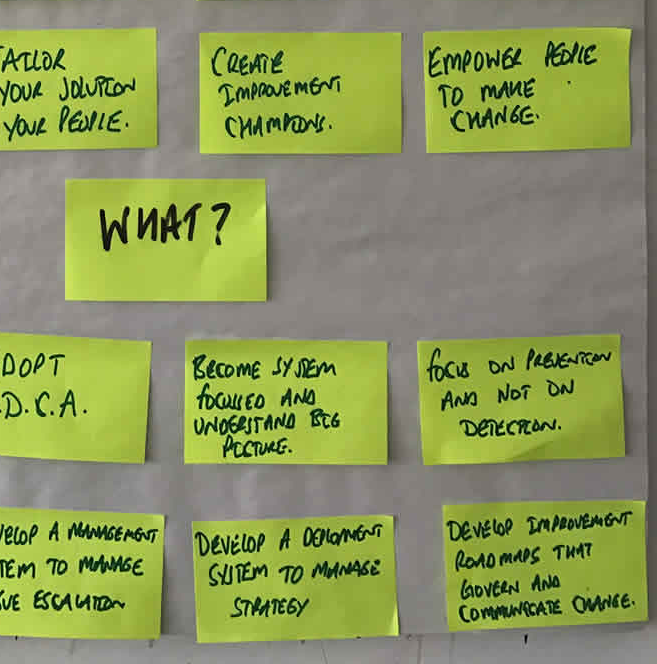 TAILOR
YOUR SOLUTION
YOUR PEOPLE.
CREATE
IMPROVEMENT
CHAMPIONS.
EMPOWER PEOPLE
TO MAKE
CHANGE.
WHAT?
DOPT
.D.C.A.
BECOME SYSTEM
FOCUSED AND
UNDERSTAND BIG
PICTURE.
FOCUS ON PREVENTION
AND NOT ON
DETECTION.
VELOP A MANAGEMENT
TEM TO MANAGE
UE ESCALATION
DEVELOP A DEPLOYMENT
SYSTEM TO MANAGE
STRATEGY
DEVELOP IMPROVEMENT
ROADMAPS THAT
GOVERN AND
COMMUNICATE CHANGE.